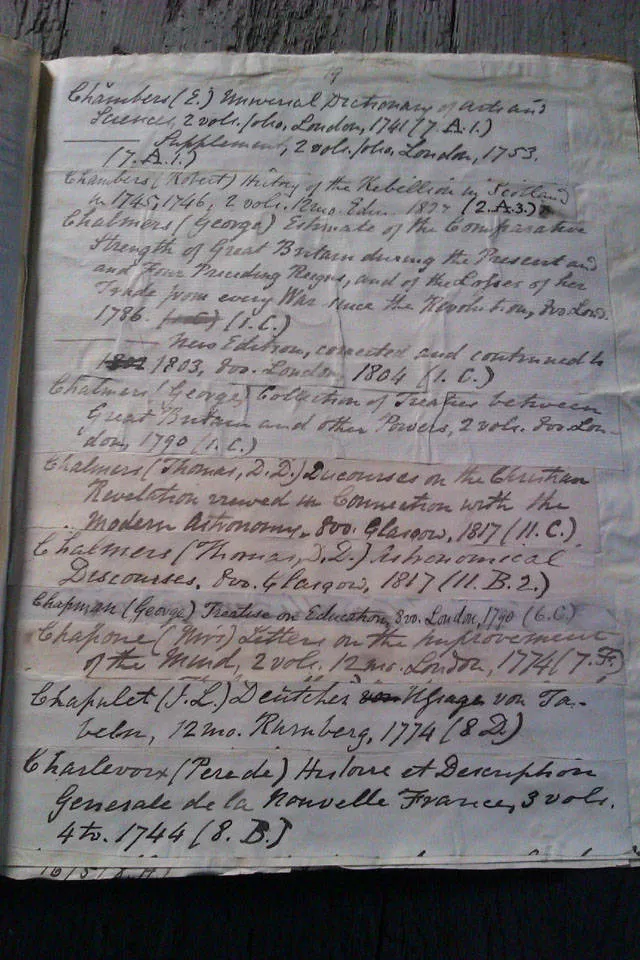 19
Chambers (E.) Universal Dictionary of Arts and
Sciences, 2 vols. folio, London, 1741 (7. A. 1.)
——— Supplement, 2 vols. folio, London, 1753.
(7. A. 1.)
Chambers (Robert) History of the Rebellion in Scotland
in 1745, 1746, 2 vols. 12mo. Edin. 1827 (2. A. 3.)
Chalmers (George) Estimate of the Comparative
Strength of Great Britain during the Present and
and Four Preceding Reigns, and of the Losses of her
Trade from every War since the Revolution, 8vo. Lond.
1786. (1. C.) (1. C.)
——— New Edition, corrected and continued to
1803, 8vo. London 1804 (1. C.)
Chalmers (George) Collection of Treaties between
Great Britain and other Powers, 2 vols. 8vo. Lon-
don, 1790 (1. C.)
Chalmers (Thomas, D.D.) Discourses on the Christian
Revelation viewed in Connection with the
Modern Astronomy. 8vo. Glasgow, 1817 (11. C.)
Chalmers (Thomas, D.D.) Astronomical
Discourses. 8vo. Glasgow, 1817 (11. B. 2.)
Chapman (George) Treatise on Education, 8vo. London, 1790 (6. C.)
Chapone (Mrs) Letters on the Improvement
of the Mind, 2 vols. 12mo. London, 1774 (7. F.)
Chapulet (J. L.) Deütcher von von Ta-
beln, 12mo. Nurnberg, 1774 (8 D.)
Charlevoix (Pere de) Histoire et Description
Generale de la Nouvelle France, 3 vols.
4to. 1744 (8. B.)